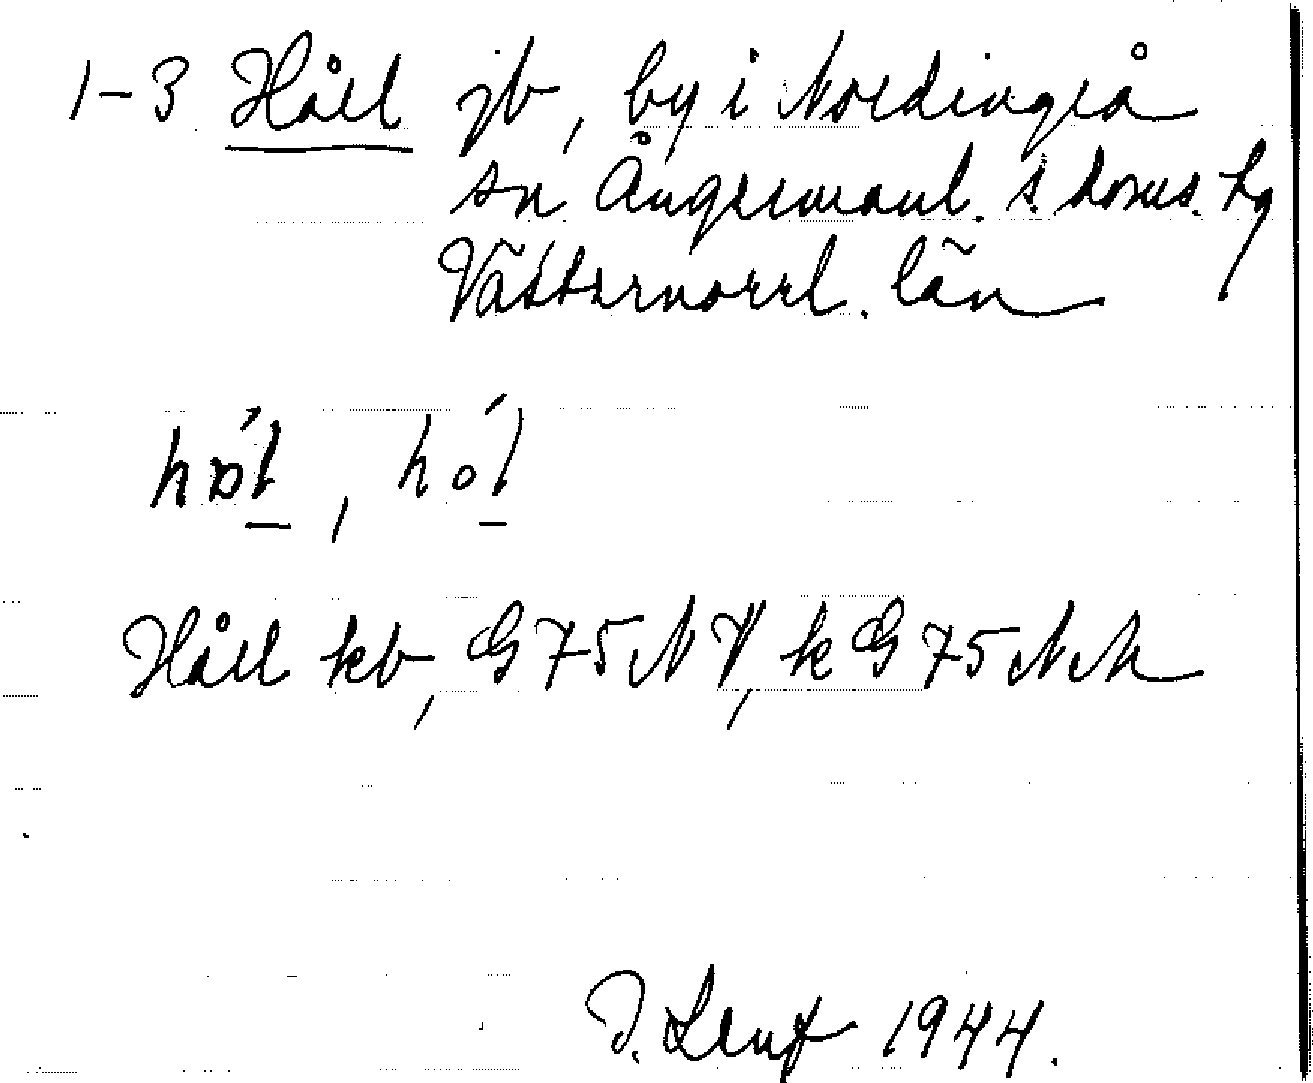 1-3 Håll jb, by i Nordingrå
sn Ångermanl. s. doms. hg
Västernorrl. län
hɒ́l, hól
Håll kb, G 75 NV, k G 75 NM
1944.